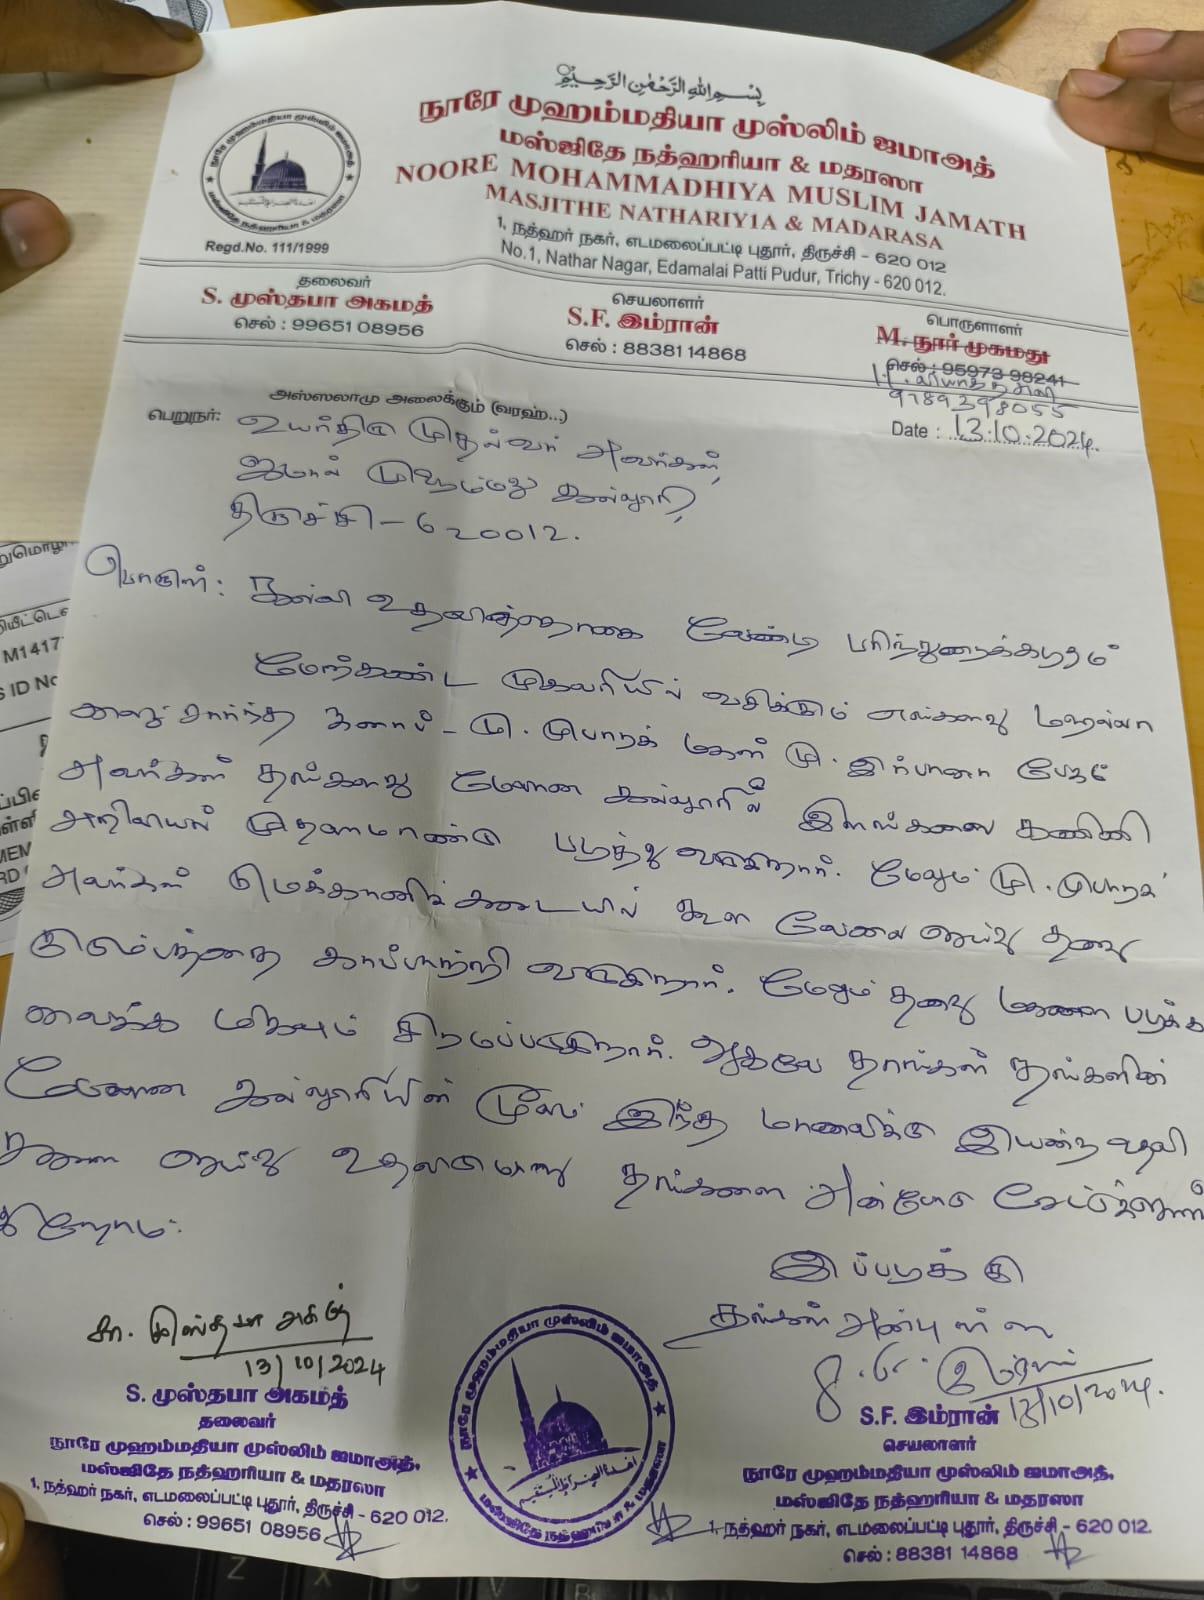 بِسْمِ اللهِ الرَّحْمٰنِ الرَّحِيْمِ
நூரே முஹம்மதியா முஸ்லிம் ஜமாஅத்
மஸ்ஜிதே நத்ஹரியா & மதரஸா
NOORE MOHAMMADHIYA MUSLIM JAMATH
MASJITHE NATHARIY1A & MADARASA
1, நத்ஹர் நகர், எடமலைப்பட்டி புதூர், திருச்சி - 620 012
No.1, Nathar Nagar, Edamalai Patti Pudur, Trichy - 620 012.
நூரே முஹம்மதியா முஸ்லிம் ஜமாஅத்
மஸ்ஜிதே நத்ஹரியா & மதரஸா
Regd.No. 111/1999
தலைவர்
S. முஸ்தபா அகமத்
செல் : 99651 08956
செயலாளர்
S.F. இம்ரான்
செல் : 88381 14868
பொருளாளர்
M. நூர் முகமது
செல் : 95973 98241
9789398055
அஸ்ஸலாமு அலைக்கும் (வரஹ்...)
Date : 13.10.2024.
பெறுநர்: உயர்திரு முதல்வர் அவர்கள்,
ஜமால் முஹம்மது கல்லூரி,
திருச்சி - 620012.
பொருள் : கல்வி உதவித்தொகை வேண்டி பரிந்துரைக்கடிதம்
மேற்கண்ட முகவரியில் வசிக்கும் எங்களது மஹல்லா
வை சார்ந்த ஜனாப் - மு. முபாரக் மகள் மு. இர்பானா பேகம்
அவர்கள் தங்களது மேலான கல்லூரியில் இளங்கலை கணினி
அறிவியல் முதலாமாண்டு படித்து வருகிறார். மேலும் மு. முபாரக்
அவர்கள் மெக்கானிக்கடையில் கூலி வேலை செய்து தனது
குடும்பத்தை காப்பாற்றி வருகிறார். மேலும் தனது மகளை படிக்க
வைக்க மிகவும் சிரமப்படுகிறார். ஆகவே தாங்கள் தங்களின்
மேலான கல்லூரியின் மூலம் இந்த மாணவிக்கு இயன்ற உதவி
களை செய்து உதவுமாறு தங்களை அன்போடு கேட்டுக்கொள்
கிறோம்.
இப்படிக்கு
தங்கள் அன்புள்ள
13/10/2024
S. முஸ்தபா அகமத்
தலைவர்
நூரே முஹம்மதியா முஸ்லிம் ஜமாஅத்,
மஸ்ஜிதே நத்ஹரியா & மதரஸா
1, நத்ஹர் நகர், எடமலைப்பட்டி புதூர், திருச்சி - 620 012.
செல் : 99651 08956
நூரே முஹம்மதியா முஸ்லிம் ஜமாஅத்
மஸ்ஜிதே நத்ஹரியா & மதரஸா
13/10/2024.
S.F. இம்ரான்
செயலாளர்
நூரே முஹம்மதியா முஸ்லிம் ஜமாஅத்,
மஸ்ஜிதே நத்ஹரியா & மதரஸா
1, நத்ஹர் நகர், எடமலைப்பட்டி புதூர், திருச்சி - 620 012.
செல் : 88381 14868